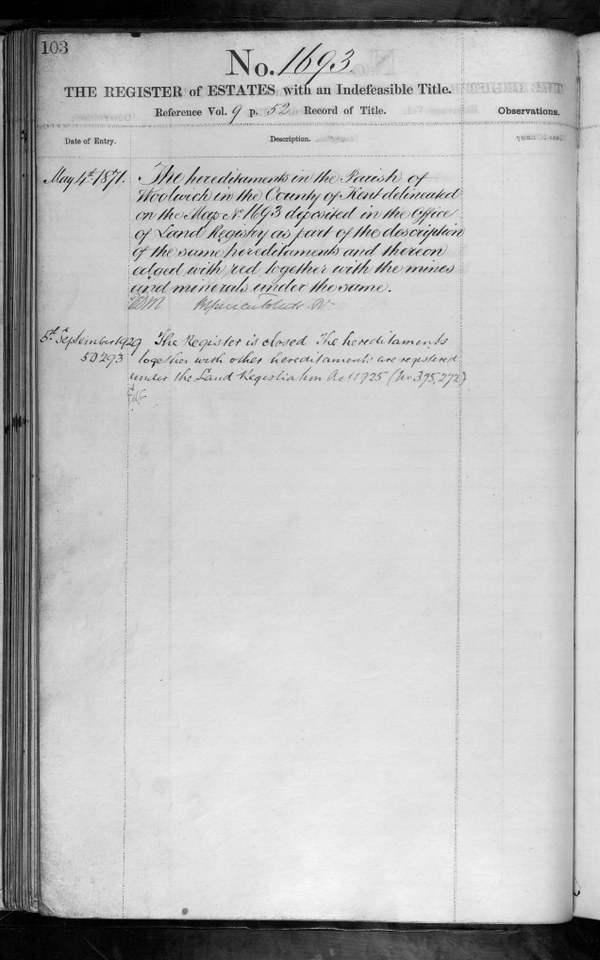 103
No. 1693.
THE REGISTER of ESTATES with an Indefeasible Title.
Reference Vol. 9 p. 52 Record of Title.
Observations.
Date of Entry.
Description.
May 4th 1871.
The hereditaments in the Parish of
Woolwich in the County of Kent delineated
on the Map No 1693 deposited in the Office
of Land Registry as part of the description
of the same hereditaments and thereon
edged with red together with the mines
and minerals under the same.
5th September 1929
50293
The Register is closed. The hereditaments
together with other hereditaments are registered
under the Land Registration Act 1925 (No. 395,272)